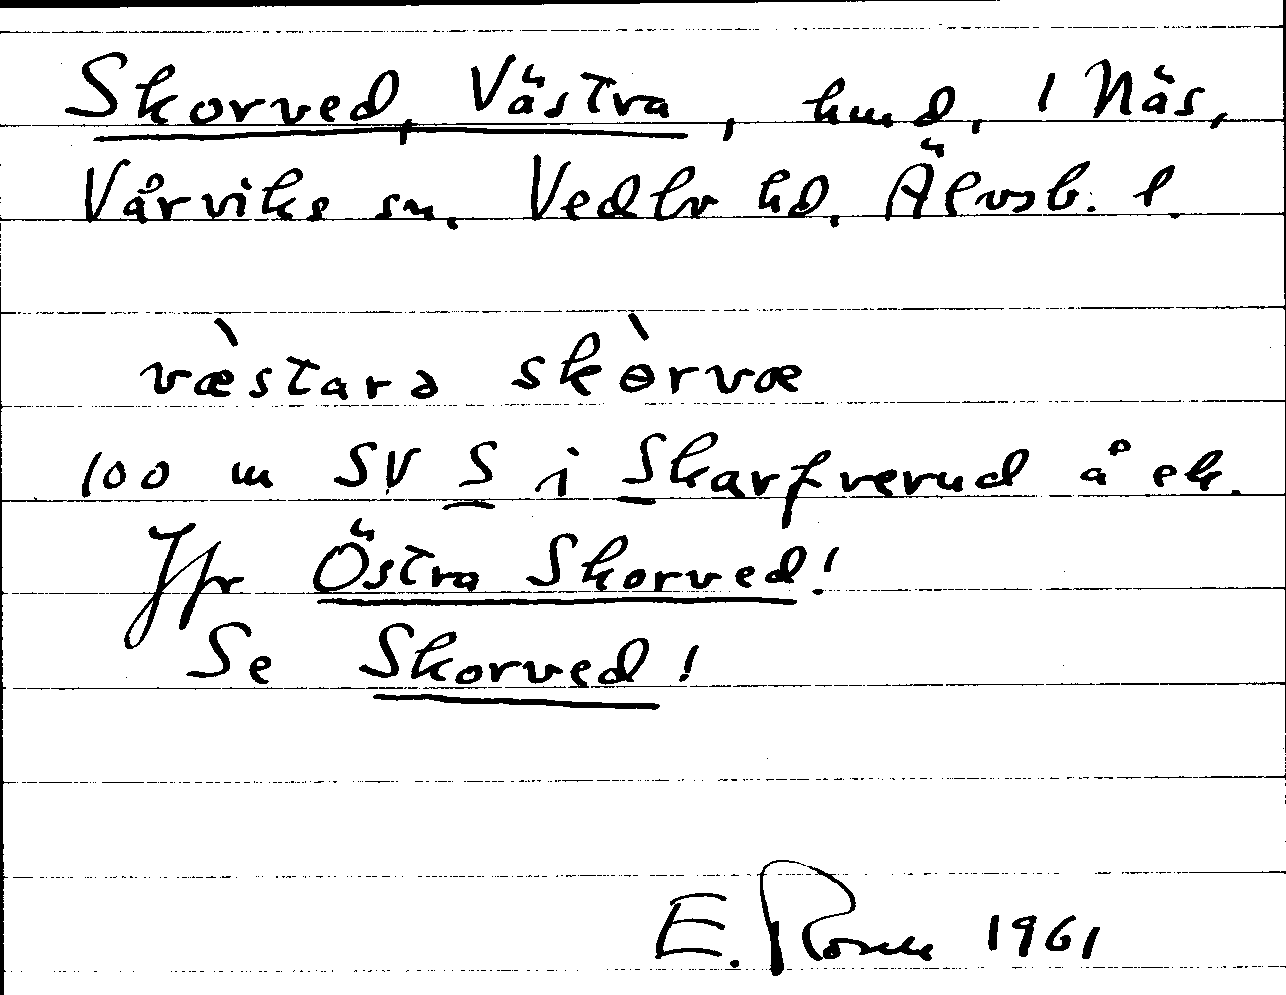 Skorved, Västra, hmd, 1 Näs,
Vårviks sn. Vedbo hd. Älvsb. l.
væ̀starə skɵ̀rvæ
100 m SV S i Skarfverud å ek.
Jfr Östra Skorved!
Se Skorved!
E. 1961